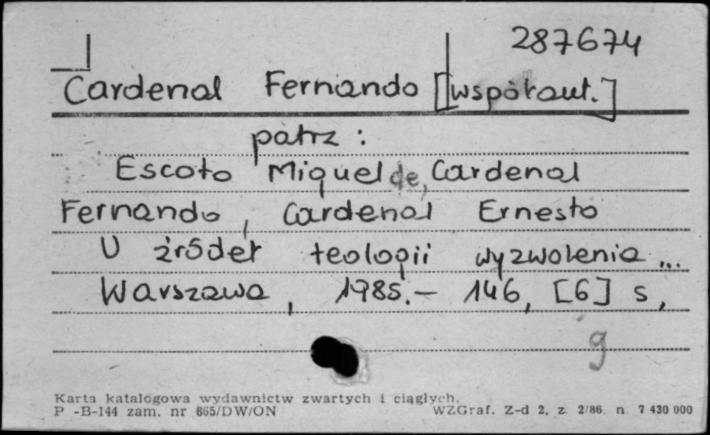 287674
Cardenal Fernando [współaut.]
patrz :
Escoto Miquel de, Cardenal
Fernando, Cardenal Ernesto
U źródeł teologii wyzwolenia ...
Warszawa, 1985.- 146, [6] s,
g
Karta katalogowa wydawnictw zwartych i ciągłych.
P -B-144 zam. nr 865/DW/ON WZGraf. Z-d 2, z. 2/86. n. 7 430 000